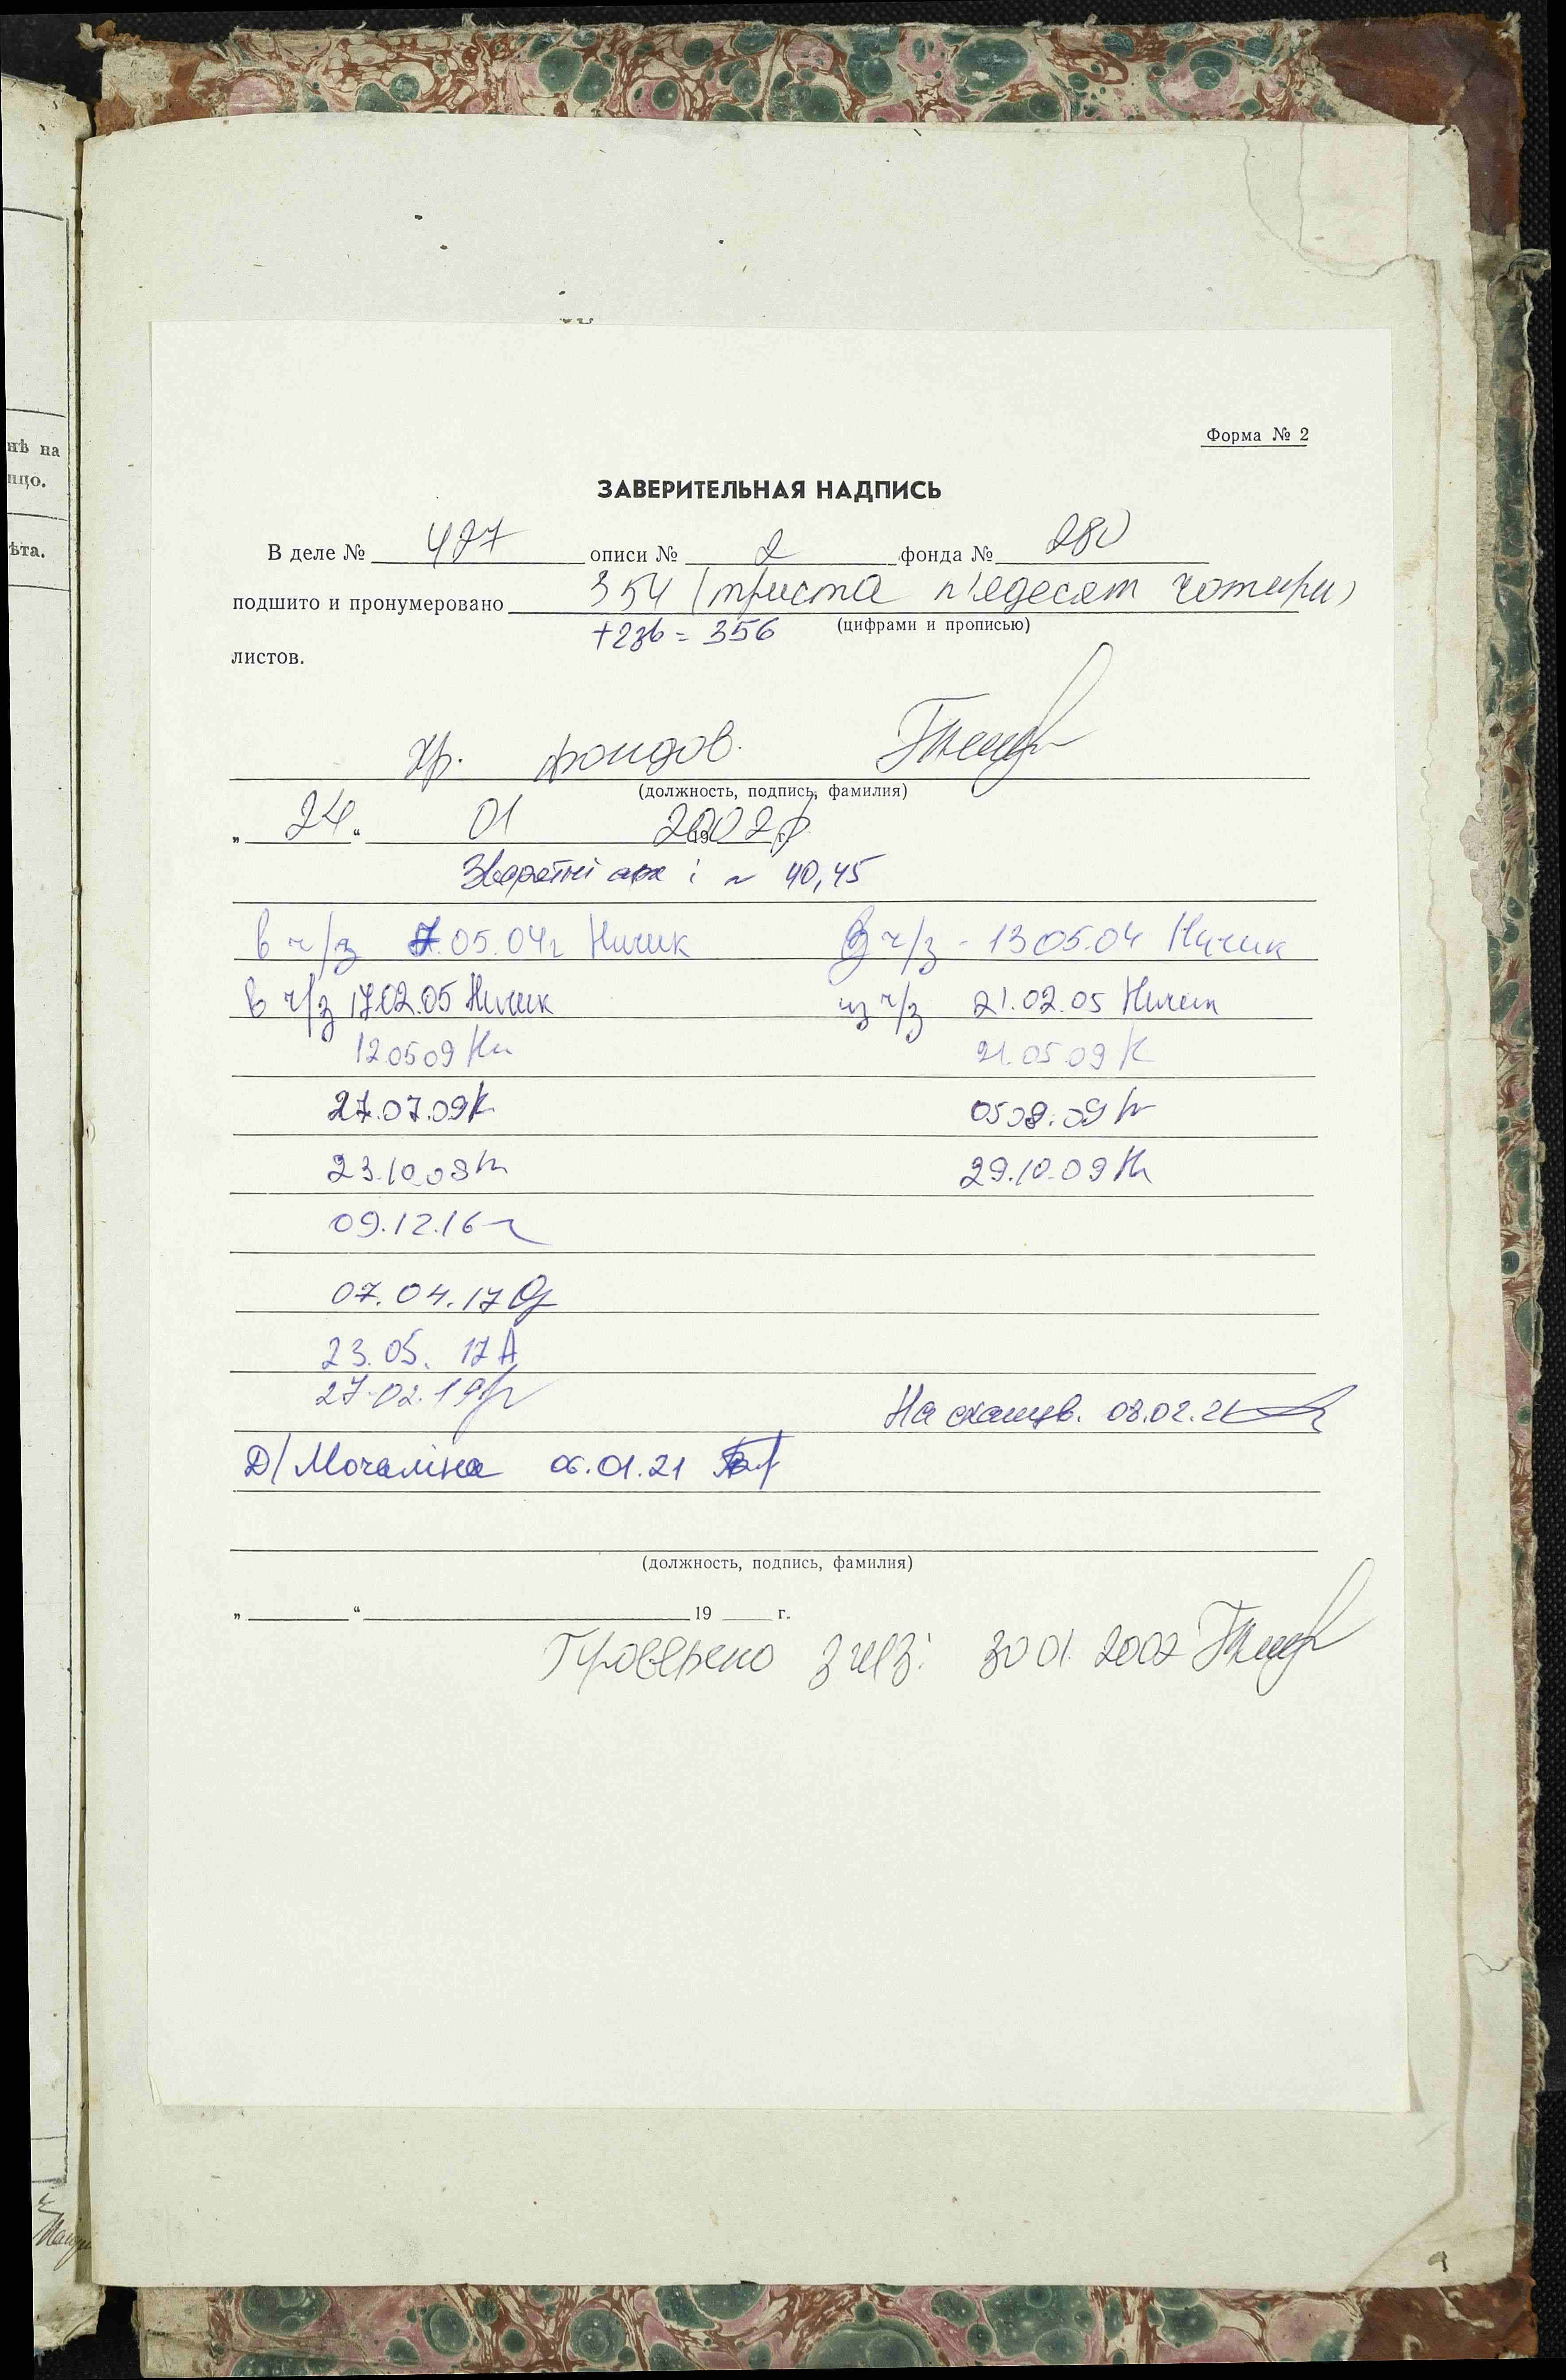 нѣ на
ѣта.
Форма № 2
ЗАВЕРИТЕЛЬНАЯ НАДПИСЬ
В деле № 427 описи № 2 фонда № 280
подшито и пронумеровано 354 (триста п'ядесят чотири)
(цифрами и прописью)
+2зв = 356
листов.
хр. фондов.
(должность, подпись, фамилия)
„ 24 “ 01 2002 г
Зворотні арк : 40,45
в ч/з 7.05.04г Ничик З ч/з - 13 05.04 Ничик
в ч/з 17.02.05 Ничик из ч/з 21.02.05 Ничик
12 05 09 21.05 09 К
27.07.09 К 05 08.09
23.10.09 29.10.09
09.12.16
07.04.17
23.05. 17 А
27.02.19
На сканув. 08.02.21
Д/ Мочаліна 06.01.21
(должность, подпись, фамилия)
„ “ 19 г.
Проверено 30 01. 2002